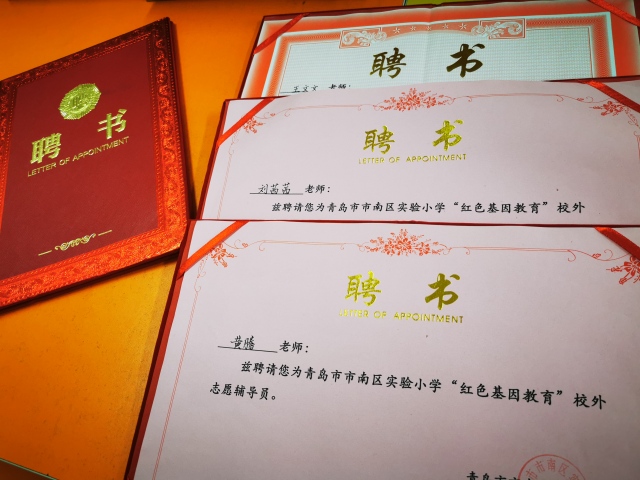 聘 书
LETTER OF APPOINTMENT
聘 书
王文文 老师:
聘 书
LETTER OF APPOINTMENT
刘茜茜 老师:
兹聘请您为青岛市市南区实验小学“红色基因教育”校外
聘 书
LETTER OF APPOINTMENT
黄腾 老师:
兹聘请您为青岛市市南区实验小学“红色基因教育”校外
志愿辅导员。
青岛市市
市市南区